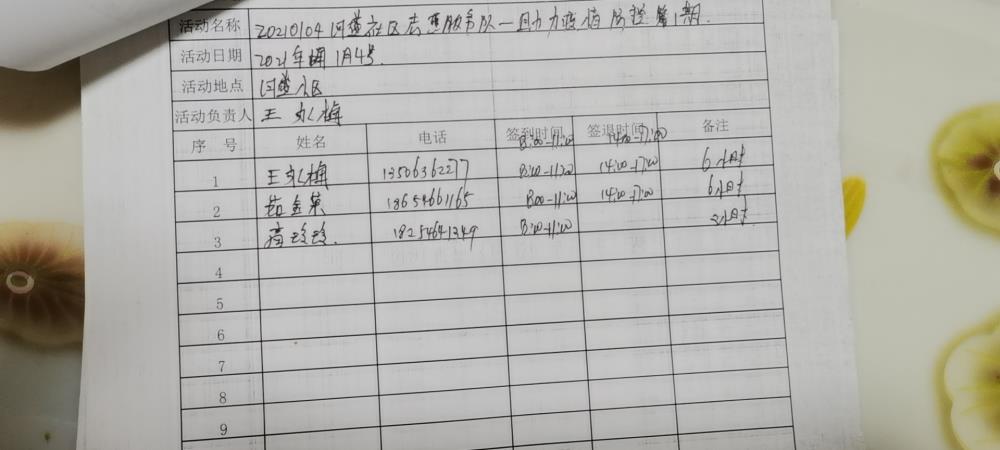 活动名称 20210104河道社区志愿服务队—助力疫情防控第1期.
活动日期 2021年 1月4号.
活动地点 河道小区
活动负责人 王永梅
序 号 姓名 电话 签到时间 签退时间 备注
8:00-11:00 14:00-17:00
1 王永梅 13506362277 8:00-11:00 14:00-17:00 6小时
2 金 18654661165 8:00-11:00 14:00-17:00 6小时
3 高玲玲. 18254641349 8:00-11:00 3小时
4
5
6
7
8
9